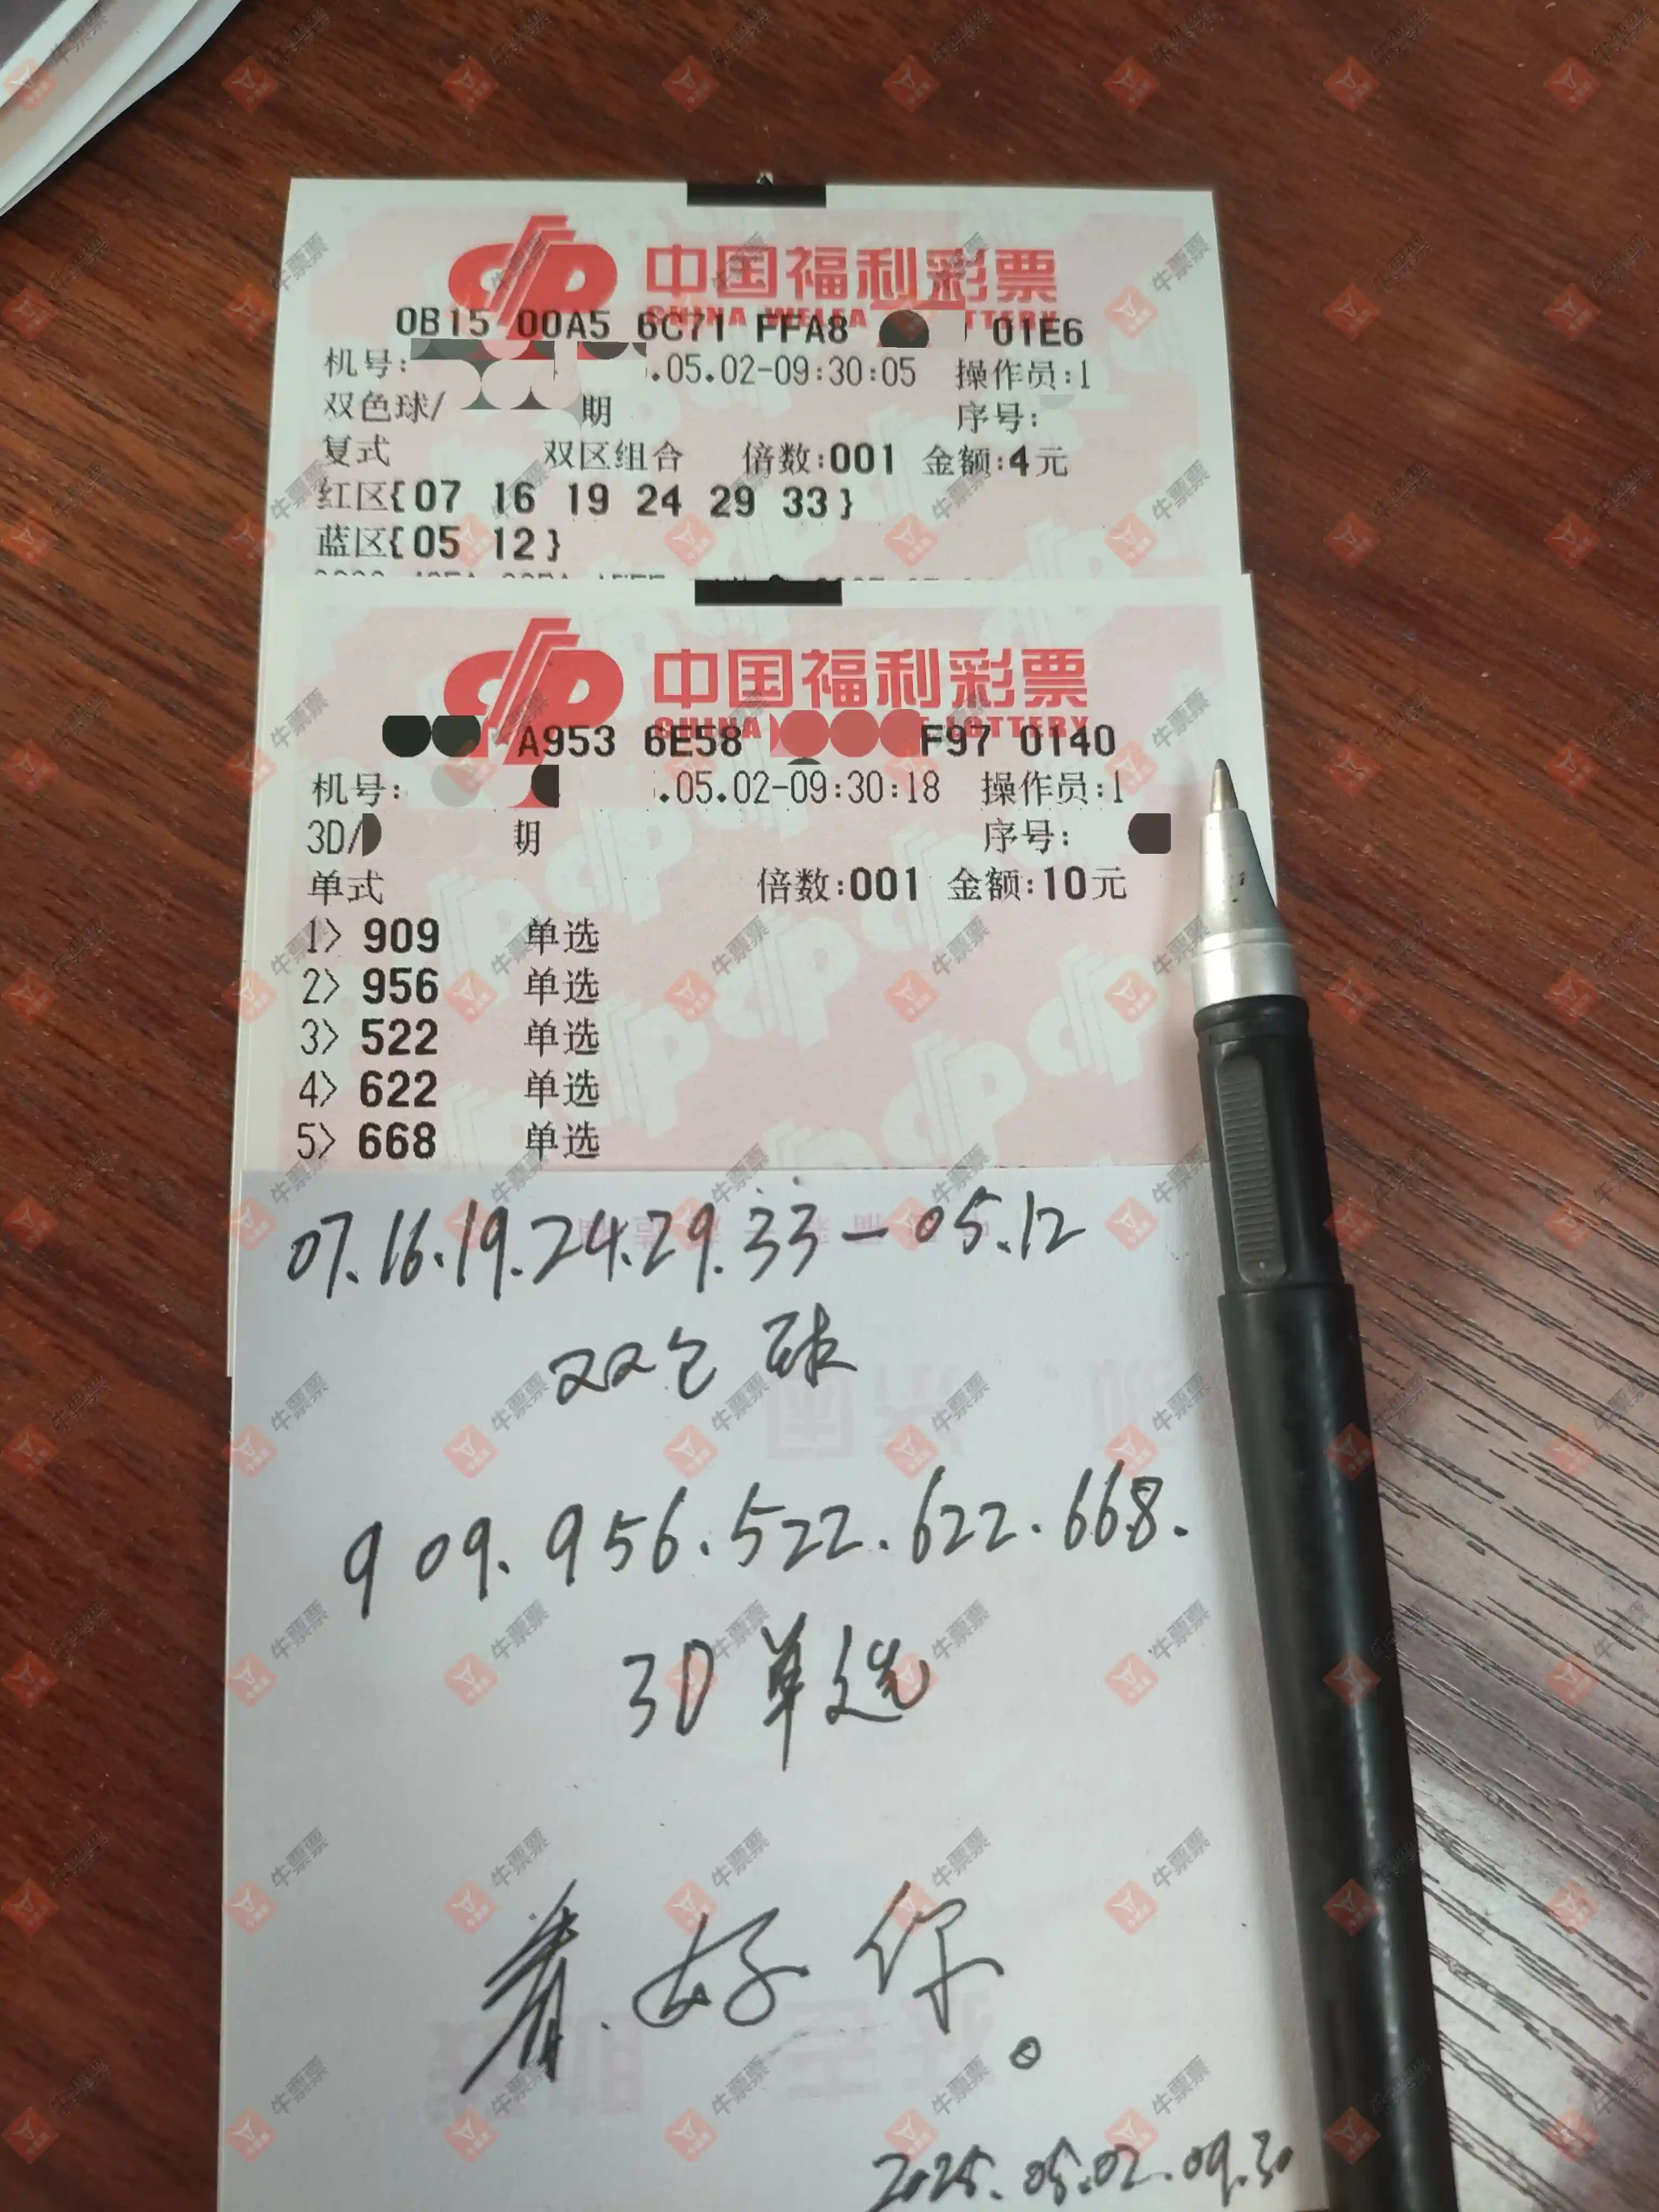 中国福利彩票
CHINA WELFA TTERY
0B15 00A5 6C71 FFA8 01E6
机号: .05.02-09:30:05 操作员:1
双色球/ 期 序号:
复式 双区组合 倍数:001 金额:4元
红区{07 16 19 24 29 33}
蓝区{05 12}
中国福利彩票
CHINA LOTTERY
A953 6E58 F97 0140
机号: .05.02-09:30:18 操作员:1
3D/ 期 序号:
单式 倍数:001 金额:10元
1> 909 单选
2> 956 单选
3> 522 单选
4> 622 单选
5> 668 单选
07.16.19.24.29.33-05.12
双色球
909.956.522.622.668.
3D单选
看好你。
2025.05.02.09.30
牛票票